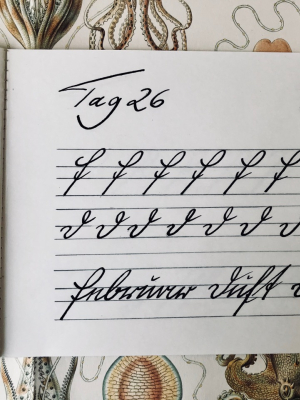 Tag 26
F F F F F F
D D D D D D D
Februar Duft